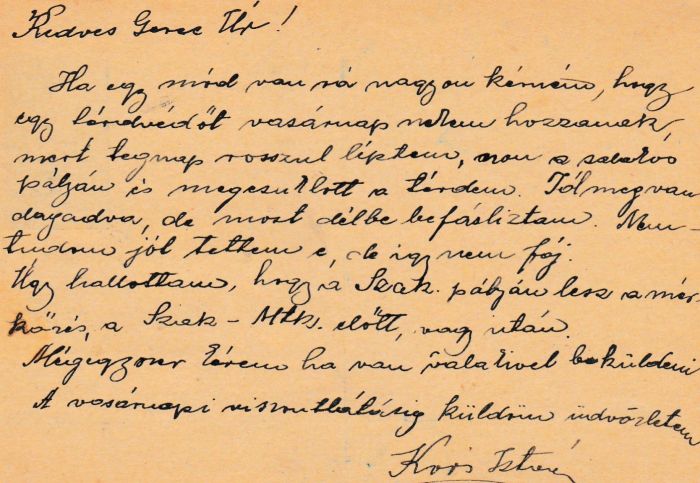 Kedves Gerec Úr!
Ha egy mód van rá nagyon kérném, hogy
egy térdvédőt vasárnap nekem hozzanak,
mert tegnap rosszul léptem, a
pályán és megcsuklott a térdem. Jól meg van
dagadva, de most délbe befásliztam. Nem
tudom jól tettem e, de így nem fáj.
Úgy hallottam, hogy a Szak. pályán lesz a mér-
kőzés, a Szak - Mtk. előtt, vagy után.
Mégegyszer kérem ha van valakivel beküldeni
A vasárnapi viszontlátásig küldöm üdvözletem
Koós István